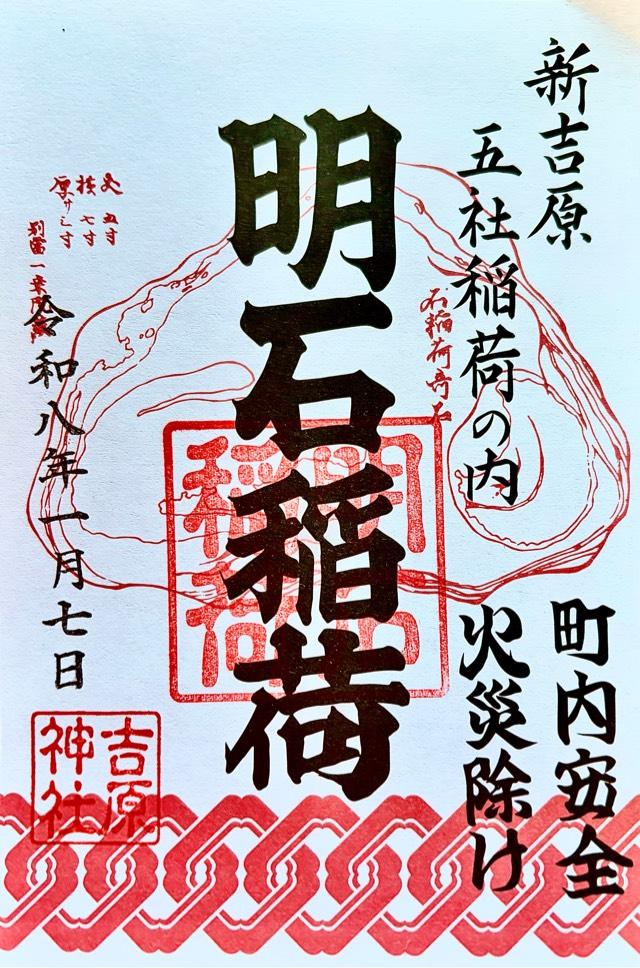 新吉原
五社稲荷の内
町内安全
火災除け
明石稲荷
明石
稲荷
石稲荷奇石
丈 五寸
横 七寸
厚サ 三寸
令和八年一月七日
吉原
神社